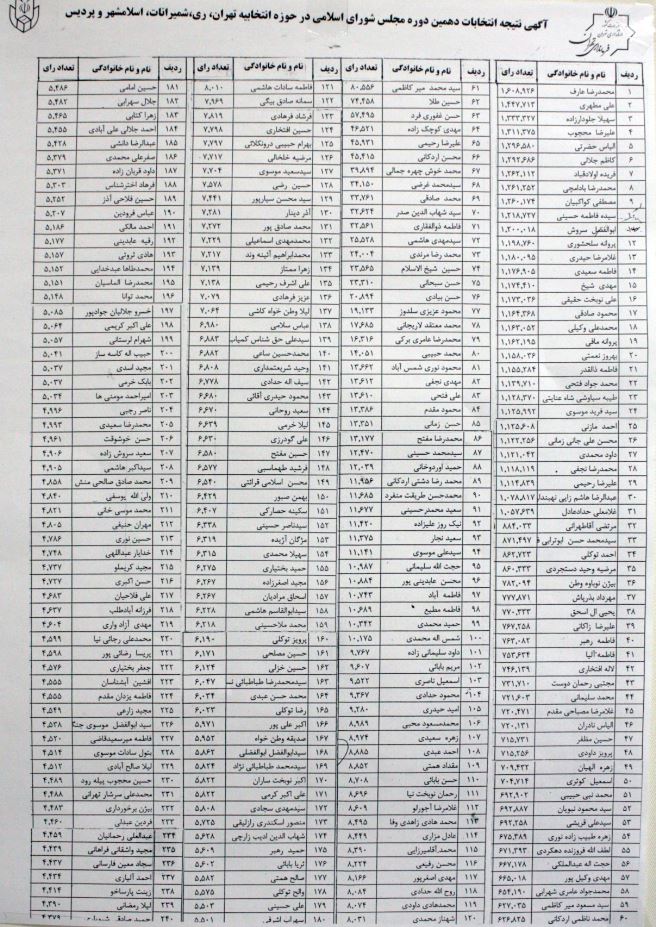 آگهی نتیجه انتخابات دهمین دوره مجلس شورای اسلامی در حوزه انتخابیه تهران، ری، شمیرانات، اسلامشهر و پردیس
ردیف نام و نام خانوادگی تعداد رای
۱ محمدرضا عارف ۱,۶۰۸,۹۲۶
۲ علی مطهری ۱,۴۴۷,۷۱۳
۳ سهیلا جلودارزاده ۱,۳۳۲,۳۲۷
۴ علیرضا محجوب ۱,۳۱۱,۳۷۵
۵ الیاس حضرتی ۱,۲۹۶,۵۸۰
۶ کاظم جلالی ۱,۲۹۲,۶۸۶
۷ فریده اولادقباد ۱,۲۶۲,۱۱۲
۸ محمدرضا بادامچی ۱,۲۶۱,۲۵۲
۹ مصطفی کواکبیان ۱,۲۶۰,۱۷۴
۱۰ سیده فاطمه حسینی ۱,۲۱۸,۷۲۷
ابوالفضل سروش ۱,۲۰۰,۰۱۸
۱۲ پروانه سلحشوری ۱,۱۹۸,۷۶۰
۱۳ غلامرضا حیدری ۱,۱۸۰,۰۹۵
۱۴ فاطمه سعیدی ۱,۱۷۶,۹۰۵
۱۵ مهدی شیخ ۱,۱۷۴,۴۱۰
۱۶ علی نوبخت حقیقی ۱,۱۷۳,۰۳۶
۱۷ محمود صادقی ۱,۱۶۴,۳۶۸
۱۸ محمدعلی وکیلی ۱,۱۶۳,۰۵۲
۱۹ پروانه مافی ۱,۱۶۲,۱۹۵
۲۰ بهروز نعمتی ۱,۱۵۸,۰۳۶
۲۱ فاطمه ذالقدر ۱,۱۵۵,۲۸۴
۲۲ محمد جواد فتحی ۱,۱۳۹,۷۱۰
۲۳ طیبه سیاوشی شاه عنایتی ۱,۱۲۸,۳۷۰
۲۴ سید فرید موسوی ۱,۱۲۵,۹۹۲
۲۵ احمد مازنی ۱,۱۲۵,۶۰۸
۲۶ محسن علی جانی زمانی ۱,۱۲۲,۲۵۶
۲۷ داود محمدی ۱,۱۲۱,۰۴۲
۲۸ محمدرضا نجفی ۱,۱۱۸,۱۱۹
۲۹ علیرضا رحیمی ۱,۱۱۴,۸۳۹
۳۰ عبدالرضا هاشم زایی ۱,۰۷۸,۸۱۷
۳۱ غلامعلی حدادعادل ۱,۰۵۷,۶۳۹
۳۲ مرتضی آقاطهرانی ۸۸۴,۰۳۳
۳۳ سیدمحمد حسن ابوترابی ۸۷۱,۴۹۷
۳۴ احمد توکلی ۸۶۲,۷۲۳
۳۵ مرضیه وحید دستجردی ۸۶۰,۳۳۳
۳۶ بیژن نوباوه وطن ۷۸۲,۰۹۴
۳۷ مهرداد بذرپاش ۷۷۷,۸۷۱
۳۸ یحیی آل اسحق ۷۷۰,۳۳۳
۳۹ علیرضا زاکانی ۷۶۷,۲۵۸
۴۰ فاطمه رهبر ۷۶۳,۰۸۲
۴۱ فاطمه آلیا ۷۵۳,۶۳۴
۴۲ لاله افتخاری ۷۴۶,۱۳۹
۴۳ مجتبی رحمان دوست ۷۳۱,۷۱۰
۴۴ محمد سلیمانی ۷۲۱,۶۰۳
۴۵ غلامرضا مصباحی مقدم ۷۲۰,۴۷۱
۴۶ الیاس نادران ۷۲۰,۱۳۱
۴۷ حسین مظفر ۷۱۵,۷۳۱
۴۸ پرویز داودی ۷۱۵,۲۵۶
۴۹ زهره الهیان ۷۰۹,۴۳۲
۵۰ اسمعیل کوثری ۷۰۴,۷۱۴
۵۱ محمد نبی حبیبی ۶۹۲,۹۰۲
۵۲ سید محمود نبویان ۶۹۲,۸۸۷
۵۳ سیدعلی قریشی ۶۹۲,۲۵۸
۵۴ زهره طبیب زاده نوری ۶۷۵,۳۸۹
۵۵ لطف الله فروزنده دهکردی ۶۷۱,۳۹۳
۵۶ حجت اله عبدالملکی ۶۶۷,۱۷۸
۵۷ مهدی وکیل پور ۶۶۵,۰۱۸
۵۸ محمدجواد عامری شهرابی ۶۵۴,۱۹۰
۵۹ سید مسعود میر کاظمی ۶۲۷,۰۳۵
۶۰ محمد ناظمی اردکانی ۶۲۶,۸۲۵
ردیف نام و نام خانوادگی تعداد رای
۶۱ سید محمد میر کاظمی ۸۰,۵۵۶
۶۲ حسین طلا ۷۴,۲۵۸
۶۳ حسن غفوری فرد ۵۷,۴۹۵
۶۴ مهدی کوچک زاده ۴۶,۵۲۱
۶۵ علیرضا رحیمی ۴۵,۹۳۱
۶۶ محسن اردکانی ۴۵,۴۱۵
۶۷ محمد خوش چهره جمالی ۳۹,۸۹۴
۶۸ سیدمحمد غرضی ۳۴,۱۵۰
۶۹ محمد صادقی ۳۳,۷۶۱
۷۰ سید شهاب الدین صدر ۳۲,۶۲۴
۷۱ فاطمه ذوالفقاری ۳۲,۵۶۱
۷۲ سیدمهدی هاشمی ۲۵,۵۲۸
۷۳ محمد رضا مرندی ۲۴,۰۰۴
۷۴ حسین شیخ الاسلام ۲۳,۵۶۵
۷۵ حسن سبحانی ۲۳,۳۱۰
۷۶ حسن بیادی ۲۰,۸۹۴
۷۷ محمود عزیزی سلدوز ۱۹,۱۳۳
۷۸ محمد معتقد لاریجانی ۱۷,۶۸۵
۷۹ محمدرضا عامری برکی ۱۶,۳۱۶
۸۰ محمد حبیبی ۱۴,۰۵۱
۸۱ محمود نوری شمس آباد ۱۳,۶۶۲
۸۲ مهدی نجفی ۱۳,۶۱۲
۸۳ علی فتحی ۱۳,۶۱۰
۸۴ محمود مقدم ۱۳,۳۸۶
۸۵ حسن زمانی ۱۳,۳۵۱
۸۶ محمدرضا مفتح ۱۳,۱۷۷
۸۷ سیدمحمد حسینی ۱۲,۴۷۰
۸۸ حمید آوردوخانی ۱۲,۰۳۹
۸۹ محمد رضا دشتی اردکانی ۱۱,۹۵۶
۹۰ محمدحسن طریقت منفرد ۱۱,۶۸۵
۹۱ سعید محمدرحسینی ۱۱,۶۷۷
۹۲ نیک روز علیزاده ۱۱,۴۲۰
۹۳ سعید نجار ۱۱,۳۷۵
۹۴ سیدعلی موسوی ۱۱,۱۴۱
۹۵ حجت الله سلیمانی ۱۰,۹۸۷
۹۶ محسن عابدینی پور ۱۰,۸۸۴
۹۷ فاطمه آباد ۱۰,۷۴۳
۹۸ فاطمه مطیع ۱۰,۶۸۹
۹۹ حمید محمدی ۱۰,۳۴۲
۱۰۰ شمس اله محمدی ۱۰,۱۷۵
۱۰۱ داود سلیمانی زاده ۹,۷۶۷
۱۰۲ مریم بابائی ۹,۶۰۷
۱۰۳ اسمعیل ناصری ۹,۵۲۲
۱۰۴ محمود حدادی ۹,۳۶۷
۱۰۵ امید حیدری ۹,۲۸۰
۱۰۶ محمدمسعود محبی ۸,۹۸۹
۱۰۷ زهره سعیدی ۸,۹۷۴
۱۰۸ احمد عبدی ۸,۸۸۵
۱۰۹ مقداد همتی ۸,۸۵۲
۱۱۰ حسن بابائی ۸,۷۰۸
۱۱۱ رحمان نوبخت نیا ۸,۶۹۶
۱۱۲ غلامرضا آجورلو ۸,۶۰۹
۱۱۳ محمد هادی زاهدی وفا ۸,۴۹۵
۱۱۴ عادل مزاری ۸,۴۴۹
۱۱۵ محمد آقامیرزایی ۸,۳۹۰
۱۱۶ محسن رفیعی ۸,۲۲۴
۱۱۷ مهدی اصغرپور ۸,۱۶۶
۱۱۸ روح الله حدادی ۸,۰۸۴
۱۱۹ محمدهادی داودی ۸,۰۷۴
۱۲۰ شهناز محمدی ۸,۰۳۱
ردیف نام و نام خانوادگی تعداد رای
۱۲۱ فاطمه سادات هاشمی ۸,۰۱۰
۱۲۲ سمانه صادق بیگی ۷,۹۶۹
۱۲۳ فرشاد فرهادی ۷,۸۱۹
۱۲۴ حسین افتخاری ۷,۷۹۸
۱۲۵ بهرام حبیبی درونکلائی ۷,۷۹۷
۱۲۶ مرضیه خلخالی ۷,۷۱۷
۱۲۷ سیدسعید موسوی ۷,۷۰۴
۱۲۸ حسین رضی ۷,۵۷۸
۱۲۹ سید محسن سیارپور ۷,۴۴۱
۱۳۰ آذر دینار ۷,۲۸۱
۱۳۱ محمد صادق پور ۷,۲۷۲
۱۳۲ محمدمهدی اسماعیلی ۷,۲۲۹
۱۳۳ محمدابراهیم آئینه وند ۷,۲۱۷
۱۳۴ زهرا ممتاز ۷,۱۳۹
۱۳۵ علی اشرف رحیمی ۷,۱۳۸
۱۳۶ عزیز فرهادی ۷,۰۷۹
۱۳۷ لیلا وطن خواه کاشی ۷,۰۶۴
۱۳۸ عباس سلامی ۶,۹۸۰
۱۳۹ سیدعلی حق شناس کمیاب ۶,۸۸۳
۱۴۰ محمدحسین ساعی ۶,۸۸۲
۱۴۱ وحید شریعتمداری ۶,۸۰۸
۱۴۲ سیف اله حدادی ۶,۷۷۸
۱۴۳ محمود حیدری آقائی ۶,۶۸۰
۱۴۴ سعید روحانی ۶,۶۷۰
۱۴۵ لیلا خرمی ۶,۶۳۹
۱۴۶ علی گودرزی ۶,۶۳۰
۱۴۷ حسین مفتح ۶,۵۸۰
۱۴۸ فرشید طهماسبی ۶,۵۷۷
۱۴۹ محسن اسلامی قرائتی ۶,۵۴۰
۱۵۰ بهمن صبور ۶,۴۲۹
۱۵۱ سکینه حصارکی ۶,۴۰۷
۱۵۲ سیدناصر حسینی ۶,۳۳۸
۱۵۳ مژگان آژیده ۶,۳۱۹
۱۵۴ سهیلا محمدی ۶,۳۱۵
۱۵۵ حمید بختیاری ۶,۲۷۵
۱۵۶ مجید اصغرزاده ۶,۲۶۷
۱۵۷ اسحاق مرادیان ۶,۲۶۷
۱۵۸ سیدابوالقاسم هاشمی ۶,۲۲۸
۱۵۹ محمد ملاحسینی ۶,۲۱۸
۱۶۰ پرویز توکلی ۶,۱۹۰
۱۶۱ حسین مصلحی ۶,۱۷۱
۱۶۲ حسین خزلی ۶,۱۲۴
۱۶۳ سیدمحمدرضا طباطبائی ۶,۰۴۷
۱۶۴ محمد حسن عبدی ۶,۰۳۴
۱۶۵ رضا توکلی ۶,۰۲۳
۱۶۶ اکبر علی پور ۵,۹۷۱
۱۶۷ صدیقه وطن خواه ۵,۹۵۲
۱۶۸ سیدابوالفضل ابوالفضلی ۵,۸۶۲
۱۶۹ سیدمحمد طباطبائی نژاد ۵,۸۲۴
۱۷۰ اکبر نوبخت ساران ۵,۸۲۲
۱۷۱ علی اکبر کرمی ۵,۸۲۲
۱۷۲ سیدمهدی سجادی ۵,۸۰۸
۱۷۳ منصور اسکندری رازلیقی ۵,۷۲۵
۱۷۴ شهاب الدین ادیب زارچی ۵,۶۲۸
۱۷۵ حمید رهبر ۵,۶۰۹
۱۷۶ ثریا بابائی ۵,۶۰۲
۱۷۷ صالح همتی ۵,۵۸۲
۱۷۸ والح توکلی ۵,۵۷۵
۱۷۹ علی حسینی ۵,۵۰۳
۱۸۰ سهراب اشرفی ۵,۵۰۱
ردیف نام و نام خانوادگی تعداد رای
۱۸۱ حسین امامی ۵,۴۸۶
۱۸۲ جلال سهرابی ۵,۴۸۲
۱۸۳ زهرا کتابی ۵,۴۶۵
۱۸۴ احمد جلالی علی آبادی ۵,۴۵۵
۱۸۵ عبدالرضا دانشی ۵,۴۲۸
۱۸۶ صفرعلی محمدی ۵,۳۷۹
۱۸۷ داود قربان زاده ۵,۳۷۱
۱۸۸ فرهاد اخترشناس ۵,۳۰۳
۱۸۹ حسین فلاحی آذز ۵,۲۵۲
۱۹۰ عباس فرودین ۵,۲۰۷
۱۹۱ احمد مالکی ۵,۱۸۶
۱۹۲ رقیه عابدینی ۵,۱۷۷
۱۹۳ هادی ثروتی ۵,۱۵۷
۱۹۴ محمدطاها عبدخدایی ۵,۱۵۲
۱۹۵ محمدرضا الماسیان ۵,۱۵۱
۱۹۶ محمد توانا ۵,۱۴۸
۱۹۷ خسرو جلالیان جوادپور ۵,۰۸۵
۱۹۸ علی اکبر کریمی ۵,۰۶۴
۱۹۹ شهرام لرستانی ۵,۰۵۷
۲۰۰ حبیب اله کاسه ساز ۵,۰۴۱
۲۰۱ مجید اسدی ۵,۰۳۷
۲۰۲ بابک خرمی ۵,۰۳۷
۲۰۳ امیراحمد مومنی ها ۵,۰۳۴
۲۰۴ ناصر رجبی ۴,۹۹۶
۲۰۵ محمدرضا سعیدی ۴,۹۹۳
۲۰۶ حسن خوشوقت ۴,۹۶۱
۲۰۷ سعید سروش زاده ۴,۹۰۶
۲۰۸ سیداکبر هاشمی ۴,۹۰۵
۲۰۹ محمد صادق صالحی منش ۴,۸۵۸
۲۱۰ ولی الله یوسفی ۴,۸۴۰
۲۱۱ محمد موسی خانی ۴,۸۲۱
۲۱۲ مهران حنیفی ۴,۸۰۵
۲۱۳ حسین نوری ۴,۷۸۶
۲۱۴ خدایار عبداللهی ۴,۷۴۸
۲۱۵ مجید کریملو ۴,۷۳۷
۲۱۶ حسن اکبری ۴,۷۳۷
۲۱۷ علی فلاحیان ۴,۶۸۳
۲۱۸ فرزانه آبادطلب ۴,۶۳۷
۲۱۹ مهدی آزاد واری ۴,۶۰۴
۲۲۰ محمدعلی رجائی نیا ۴,۵۹۹
۲۲۱ پریسا رضائی پور ۴,۵۹۸
۲۲۲ جعفر بختیاری ۴,۵۷۶
۲۲۳ افشین آبشناسان ۴,۵۵۵
۲۲۴ فاطمه یزدان مقدم ۴,۵۵۵
۲۲۵ مجید زارعی ۴,۵۴۹
۲۲۶ سید ابوالفضل موسوی ۴,۵۳۸
۲۲۷ فاطمه میرسعیدقاضی ۴,۵۲۰
۲۲۸ بتول سادات موسوی ۴,۵۱۴
۲۲۹ لیلا صالح آبادی ۴,۵۱۲
۲۳۰ حسین محجوب پیله رود ۴,۴۸۹
۲۳۱ محمدعلی سرشار تهرانی ۴,۴۸۸
۲۳۲ بیژن برخورداری ۴,۴۸۳
۲۳۳ فردین عبدلی ۴,۴۶۰
۲۳۴ عبدالعلی رحمانیان ۴,۴۵۹
۲۳۵ مجید واشقانی فراهانی ۴,۴۳۹
۲۳۶ سجاد معین فارسانی ۴,۴۳۷
۲۳۷ احمد آلیاری ۴,۴۳۴
۲۳۸ زینت پارساخو ۴,۴۱۴
۲۳۹ لیلا رمضانی ۴,۳۹۰
۲۴۰ حمید صادق ۴,۳۷۹